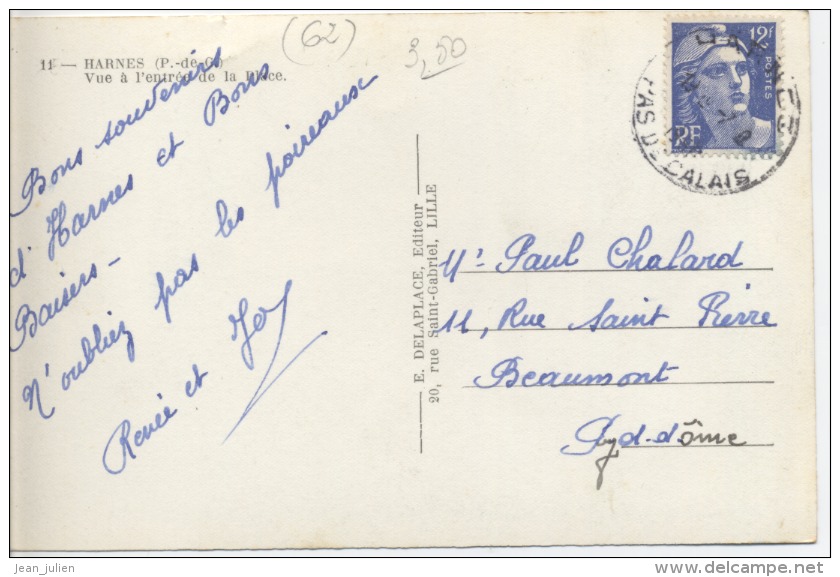 (62)
3,50
11 — HARNES (P.-de-C.)
Vue à l'entrée de la Place.
Bons souvenirs
d'Harnes et Bons
Baisers -
N'oubliez pas les poireaux
Renée et
E. DELAPLACE, Editeur
20, rue Saint-Gabriel, LILLE
12F
POSTES
RF
HARNES
PAS DE CALAIS
Mr Paul Chalard
11, Rue Saint Pierre
Beaumont
Puy-d-dôme
jean_julien
delcampe.net